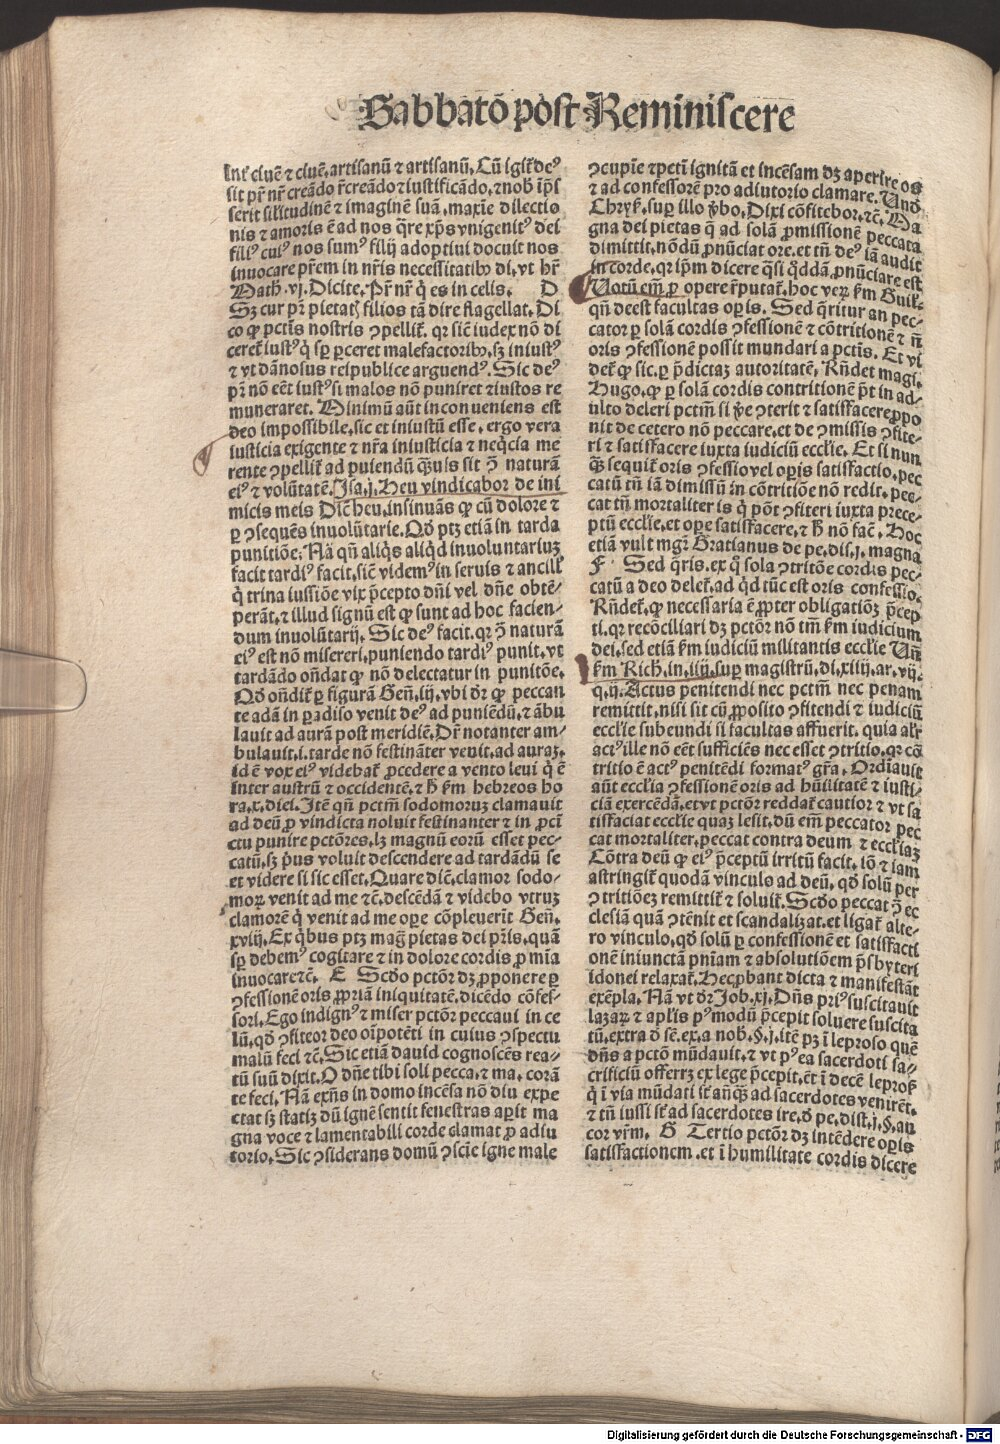 Sabbatō post Reminiscere
Inť ciuē ⁊ ciuē. artisanū ⁊ artisanū. Cū igiť deꝰ
sit pr̄ nr̄ creādo r̄creādo ⁊ iustificādo. ⁊ nob̄ ip̄s
serit sīlitudinē ⁊ imaginē suā. maxīe dilectio
nis ⁊ amoris ē ad nos q̄re xp̄s vnigenitꝰ dei
filiꝰ cuiꝰ nos sumꝰ filij adoptiui docuit nos
inuocare pr̄em in nr̄is necessitatibꝫ di. vt hr̄
Math. vj. Dicite. Pr̄ nr̄ q̇ es in celis. D
Sꝫ cur pr̄ pietatꝭ filios tā dire flagellat. Di
co ꝙ pctīs nostris ꝯpelliť. qꝛ sic̄ iudex nō di
cereť iustꝰ q̇ sꝑ ꝑceret malefactoribꝫ. sꝫ iniustꝰ
⁊ vt dānosus reipublice arguendꝰ. Sic deꝰ
pr̄ nō eēt iustꝰ si malos nō puniret ⁊ iustos re
muneraret. Minimū aūt inconueniens est
deo impossibile. sic et iniustū esse. ergo vera
iusticia exigente ⁊ nr̄a iniusticia ⁊ neq̇cia me
rente ꝯpelliť ad puiendū q̄uis sit ꝯ̄ naturā
eiꝰ ⁊ volūtatē. Isa. j. Heu vindicabor de ini
micis meis Dic̄ heu. insinuās ꝙ cū dolore ⁊
ꝑ ꝯsequēs inuolūtarie. Qd̄ ptꝫ etiā in tarda
punitiōe. Nā qn̄ aliq̇s aliq̇d inuoluntariuꝫ
facit tardiꝰ facit. sic̄ videmꝰ in seruis ⁊ ancill̄
q̇ trina iussiōe vix p̄cepto dn̄i vel dn̄e obtē⸗
perāt. ⁊ illud signū est ꝙ sunt ad hoc facien⸗
dum inuolūtarij. Sic deꝰ facit. qꝛ ꝯ̄ naturā
eiꝰ est nō misereri. puniendo tardiꝰ punit. vt
tardādo on̄dat ꝙ nō delectatur in punitōe.
Qd̄ on̄diť ꝑ figurā Gen̄. iij. vbi dr̄ ꝙ peccan
te adā in ꝑadiso venit deꝰ ad puniēdū. ⁊ ābu
lauit ad aurā post meridiē. Dr̄ notanter am⸗
bulauit. i. tarde nō festināter venit. ad auraꝫ.
id ē vox eiꝰ videbať ꝓcedere a vento leui q̇ ē
inter austrū ⁊ occidentē. ⁊ h̄ ẜm hebreos ho
ra. x. diei. Itē qn̄ pctm̄ sodomoruꝫ clamauit
ad deū ꝓ vindicta noluit festinanter ⁊ in ꝓci
ctu punire pctōres. lꝫ magnū eorū esset pec⸗
catū. sꝫ p̄us voluit descendere ad tardādū se
et videre si sic esset. Quare dic̄. clamor sodo⸗
moꝝ venit ad me ⁊c̄. descēdā ⁊ videbo vtruꝫ
clamorē q̇ venit ad me oꝑe cōpleuerīt Gen̄.
xviij. Ex q̇bus ptꝫ mag̃ pietas dei pr̄is. quā
sꝑ debemꝰ cogitare ⁊ in dolore cordis ꝓ mīa
inuocare⁊c̄. E Scd̄o pctōr dꝫ ꝓponere ꝑ
ꝯfessionē oris ꝓpriā iniquitatē. dicēdo cōfes⸗
sori. Ego indignꝰ ⁊ miser pctōr peccaui in ce
lū. qd̄ ꝯfiteor deo oīpotēti in cuius ꝯspectu
malū feci ⁊c̄. Sic etiā dauid cognoscēs rea⸗
tū suū dixit. O dn̄e tibi soli pecca. ⁊ ma. corā
te feci. Nā exn̄s in domo incēsa nō diu expe
ctat sꝫ statiꝫ dū ignē sentit fenestras aꝑit ma
gna voce ⁊ lamentabili corde clamat ꝓ adiu
torio. Sic ꝯsiderans domū ꝯscīe igne male
ꝯcupīe ⁊ pctī ignitā et incēsam dꝫ aperire os
⁊ ad confessorē pro adiutorio clamare. Vnd̄
Chryẜ. suꝑ illo v̄bo. Dixi cōfitebor. ⁊c̄. Ma
gna dei pietas q̄ ad solā ꝓmissionē peccata
dimittit. nōdū ꝓnūciat ore. et tn̄ deꝰ iā audit
in corde. qꝛ ip̄m dicere q̄si q̇ddā ꝓnūciare est
Votū em̄ ꝓ opere r̄putať. hoc veꝝ ẜm Guil⸗
qn̄ deest facultas oꝑis. Sed q̄ritur an pec⸗
cator ꝑ solā cordis ꝯfessionē ⁊ cōtritionē ⁊ n̄
oris ꝯfessionē possit mundari a pctīs. Et vi
deť ꝙ sic. ꝑ p̄dictaꝫ autoritatē. Rn̄det magi.
Hugo. ꝙ ꝑ solā cordis contritionē pt̄ in ad⸗
ulto deleri pctm̄ si v̄e ꝯterit ⁊ satisfacere ꝓpo
nit de cetero nō peccare. et de ꝯmissis ꝯfite⸗
ri ⁊ satisfacere iuxta iudiciū eccl̄ie. Et si nun
q̄ sequiť oris ꝯfessio vel oꝑis satisfactio. pec
catū tn̄ iā dimissū in cōtritiōe nō redit. pec⸗
cat tn̄ mortaliter is q̇ pōt ꝯfiteri iuxta prece⸗
ptū eccl̄ie. et oꝑe satisfacere. ⁊ h̄ nō fac̄. Hoc
etiā vult mgr̄ Gratianus de pe. dis. j. magna
F Sed q̄ris. ex q̇ sola ꝯtritōe cordis pec⸗
catū a deo deleť. ad q̇d tūc est oris confessio.
Rn̄deť. ꝙ necessaria ē ꝓpter obligatiōꝫ p̄cep
ti. qꝛ recōciliari dꝫ pctōr nō tm̄ ẜm iudicium
dei. sed etiā ẜm iudiciū militantis eccl̄ie Vn̄
ẜm Rich. in. iiij. suꝑ magistrū. di. xliij. ar. vij.
q. ij. Actus penitendi nec pctm̄ nec penam
remittit. nisi sit cū ꝓposito ꝯfitendi ⁊ iudiciū
eccl̄ie subeundi si facultas affuerit. quia alr̄
actꝰ ille nō eēt sufficiēs nec esset ꝯtritio. qꝛ cō
tritio ē actꝰ penitēdi formatꝰ gr̄a. Ordīauit
aūt ecclia ꝯfessionē oris ad hūilitatē ⁊ iusti⸗
ciā exercēdā. et vt pctōr reddať cautior ⁊ vt sa
tisfaciat eccl̄ie quaꝫ lesit. dū em̄ peccator pec
cat mortaliter. peccat contra deum ⁊ eccl̄iaꝫ
Cōtra deū ꝙ eiꝰ p̄ceptū irritū facit. iō ⁊ iam
astringiť quodā vinculo ad deū. qd̄ solū per
ꝯtritiōeꝫ remittiť ⁊ soluiť. Scd̄o peccat ꝯ̄ ec
clesiā quā ꝯtēnit et scandalizat. et ligať alte⸗
ro vinculo. qd̄ solū ꝑ confessionē et satisfacti
onē iniunctā pn̄iam ⁊ absolutiōem p̄sbyteri
idonei relaxať. Hec ꝓbant dicta ⁊ manifestāt
exēpla. Nā vt dr̄ Joh. xj. Dn̄s priꝰ suscitauit
lazaꝝ ⁊ apl̄is pꝰmodū p̄cepit soluere suscita
tū. extra d̄ sē. ex. a nob. §. j. itē pꝫ ī leproso quē
dn̄s a pctō mūdauit. ⁊ vt pꝰea sacerdoti sa⸗
crificiū offerꝫ ex lege p̄cepit. ēt ī decē leproẜ
q̇ ī via mūdati sť anq̄ ad sacerdotes venirēt.
⁊ tn̄ iussi sť ad sacerdotes ire. d̄ pe. dist. j. §. au
cor vr̄m. G Tertio pctōr dꝫ intēdere oꝑis
satisfactionem. et ī humilitate cordis dicere
Digitalisierung gefördert durch die Deutsche Forschungsgemeinschaft - DFG